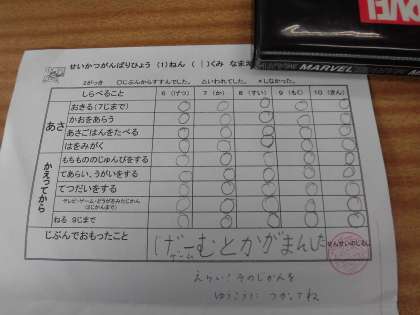 せいかつがんばりひょう (1)ねん ( )くみ なまえ
2がっき ○じぶんからすすんでした。 △いわれてした。 ×しなかった。
しらべること 6 (げつ) 7 (か) 8 (すい) 9 (もく) 10 (きん)
あさ
おきる(7じまで) ○ ○ ○ ○ ○
かおをあらう ○ ○ ○ ○ ○
あさごはんをたべる ○ ○ ○ ○ ○
はをみがく ○ ○ ○ ○ ○
かえってから
もちもののじゅんびをする ○ ○ ○ ○ ○
てあらい、うがいをする ○ ○ ○ ○ ○
てつだいをする ○ ○ ○ ○ ○
テレビ・ゲーム・どうがをみたじかん
(2じかんまで) ○ ○ ○ ○ ○
ねる 9じまで ○ ○ ○ ○ ○
じぶんでおもったこと
げーむとかがまんした
ゲーム
せんせいのしるし
えらい!そのじかんを
ゆうこうに つかってね
MARVEL
MARVEL